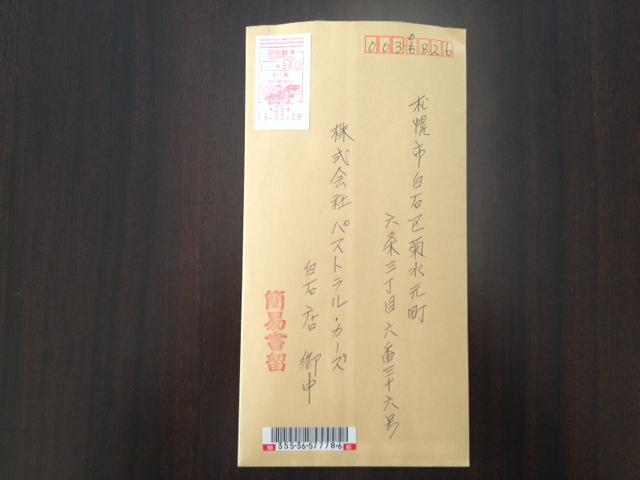 0036826
札幌市白石区菊水元町
六条三丁目六番三十六号
株式会社パストラル・カーズ
白石店 御中
簡易書留
355-36-57778-6